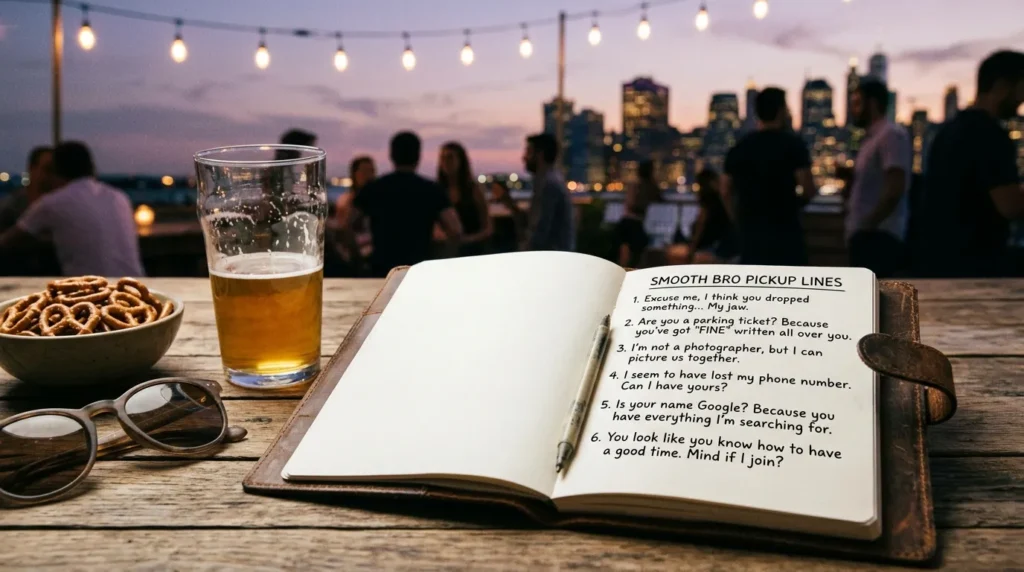 SMOOTH BRO PICKUP LINES
1. Excuse me, I think you dropped
something... My jaw.
2. Are you a parking ticket? Because
you've got "FINE" written all over you.
3. I'm not a photographer, but I can
picture us together.
4. I seem to have lost my phone number.
Can I have yours?
5. Is your name Google? Because you
have everything I'm searching for.
6. You look like you know how to have
a good time. Mind if I join?